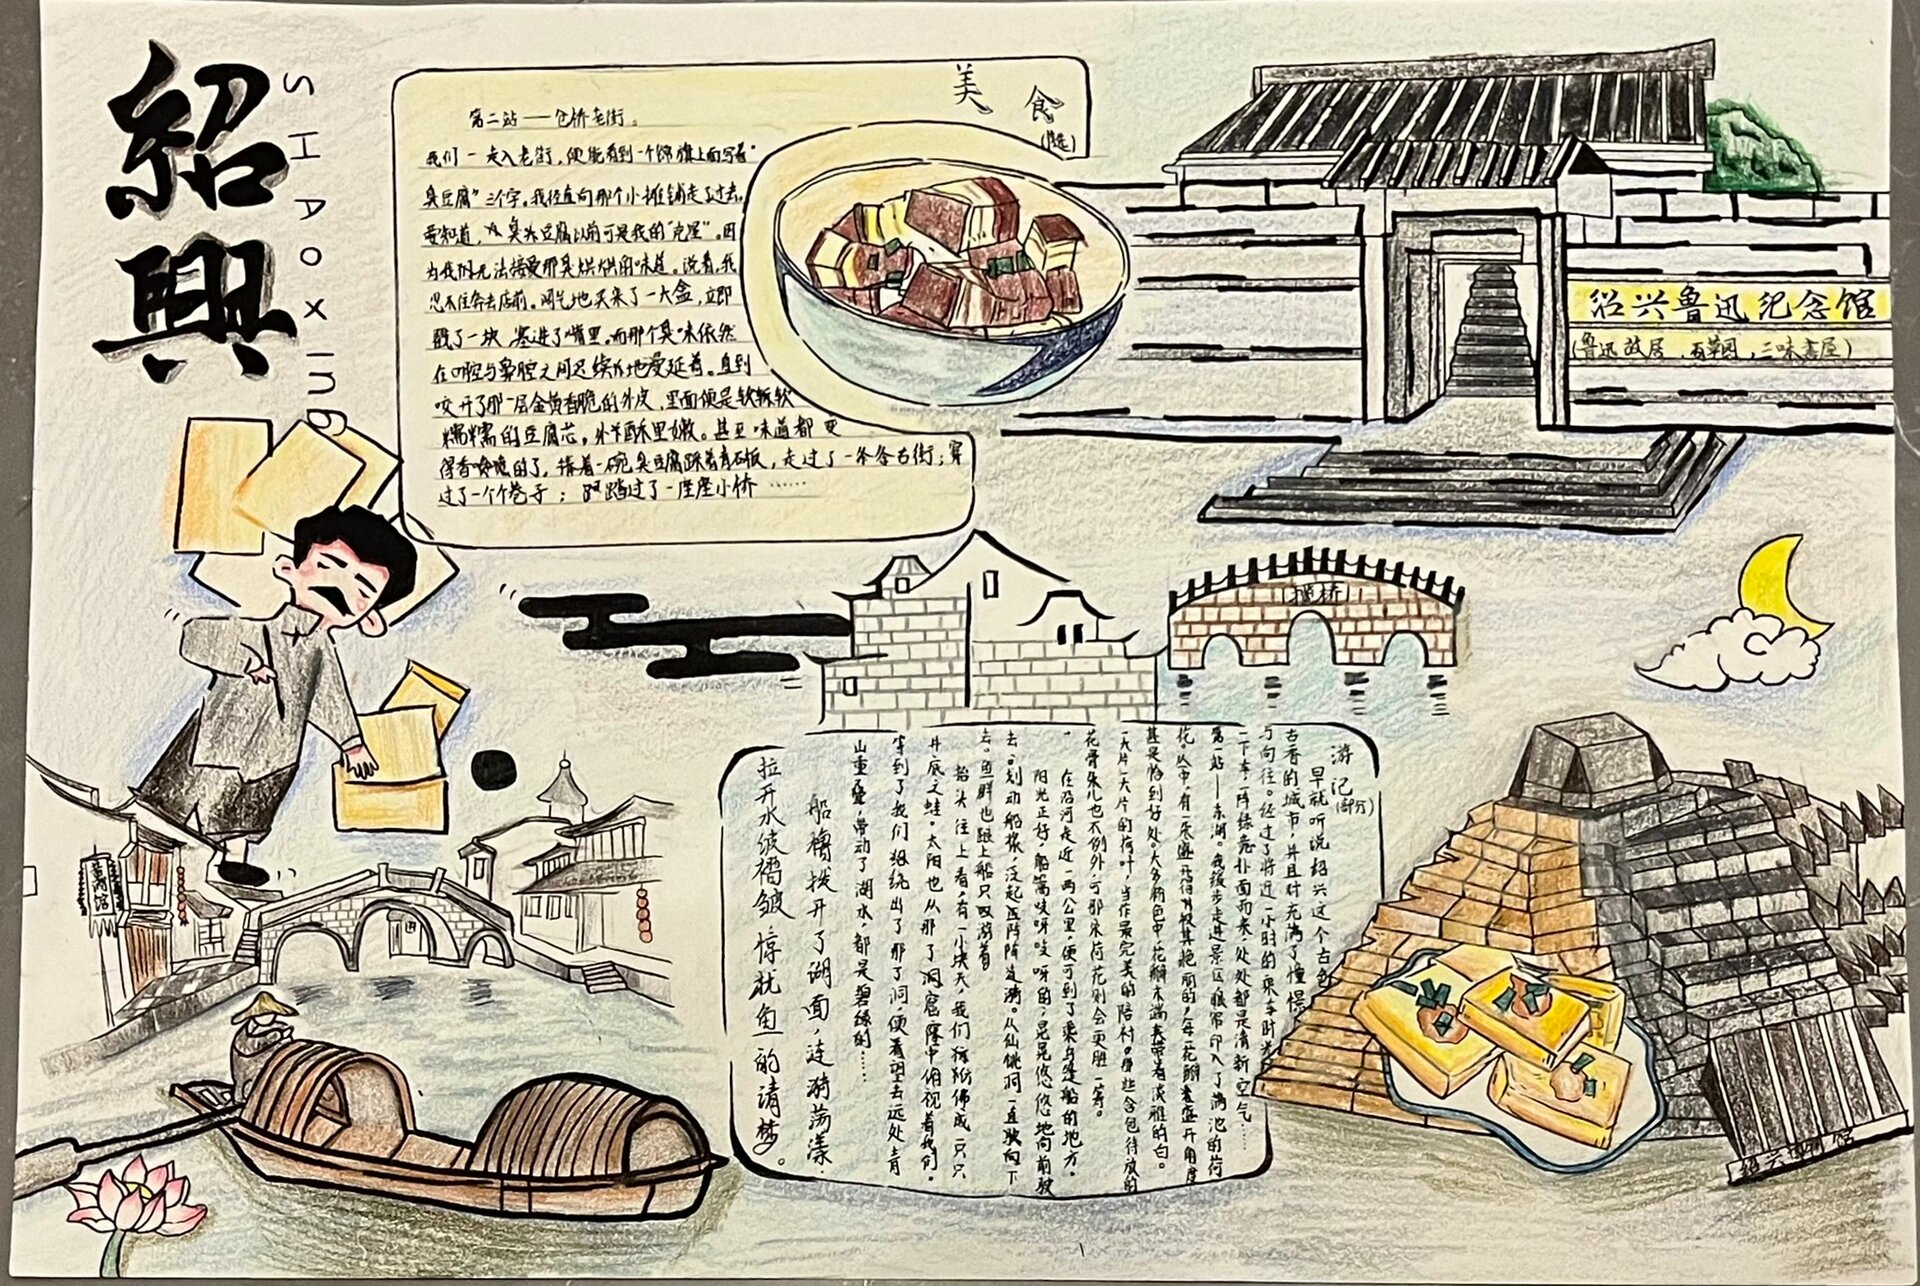 紹興
SHAOXING
美食
(精选)
第二站——仓桥老街。
我们一走入老街,便能看到一个锦旗上面写着"
臭豆腐"三个字。我径直向那个小摊铺走了过去。
要知道,臭豆腐以前可是我的"克星"。因
为我无法接受那臭烘烘的味道。说着,我
忍不住奔去店前。阔气地买来了一大盒,立即
戳了一块,塞进了嘴里。而那个臭味依然
在口腔与鼻腔之间延续地蔓延着。直到
咬开了那一层金黄香脆的外皮,里面便是软软
糯糯的豆腐芯。外酥里嫩。甚至味道都变
得香喷喷的了。捧着一碗臭豆腐踩着青石板,走过了一条条古街;穿
过了一个个巷子;踏过了一座座小桥……
绍兴鲁迅纪念馆
(鲁迅故居,百草园,三味书屋)
游记(部分)
早就听说绍兴这个古色
古香的城市,并且对充满了憧憬
与向往。经过了将近一小时的乘车时光
一下车,一阵绿意扑面而来,处处都是清新空气……
第一站——东湖。我缓步走进景区,眼帘印入了满池的荷
花。丛中,有一朵盛开得极其艳丽的,每一花瓣盛开角度
甚是恰到好处。大多粉色中,花瓣末端夹带着淡雅的白。
一大片一大片的荷叶,当作最完美的陪衬。那些含苞待放的
花骨朵儿也不例外,可那朵荷花则会更胜一筹。
在沿河走近一两公里,便可到了乘乌篷船的地方。
阳光正好,船篙吱呀吱呀的,晃晃悠悠地向前驶
去。划动船桨,泛起阵阵涟漪。从仙桃洞一直驶向下
去。鱼群也跟上船只嬉游着。
抬头往上看,有一小块天,我们仿佛成一只只
井底之蛙。太阳也从那了洞窟窿中俯视着我们。
等到了我们绕出了那了洞,便看望去远处青
山重叠,带动了湖水,都是碧绿的……
船橹拨开了湖面,涟漪荡漾,
拉开水波褶皱,惊扰鱼的清梦。